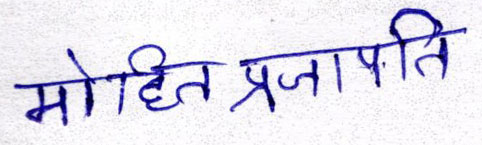 मोहित प्रजापति